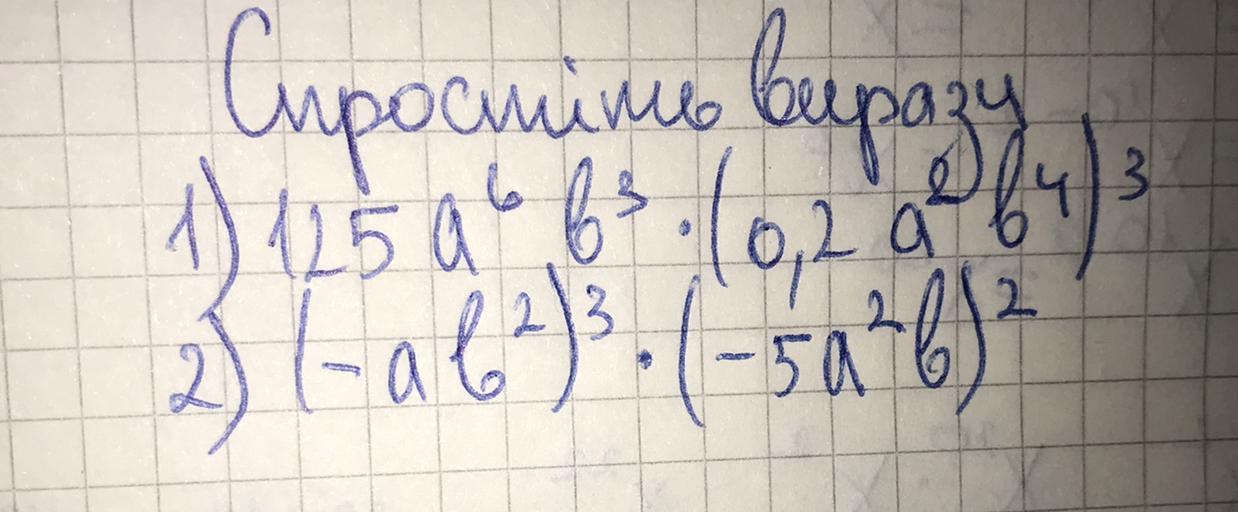 Спростіть вирази
1) 125 a⁶ b³ · (0,2 a² b⁴)³
2) (-ab²)³ · (-5a²b)²